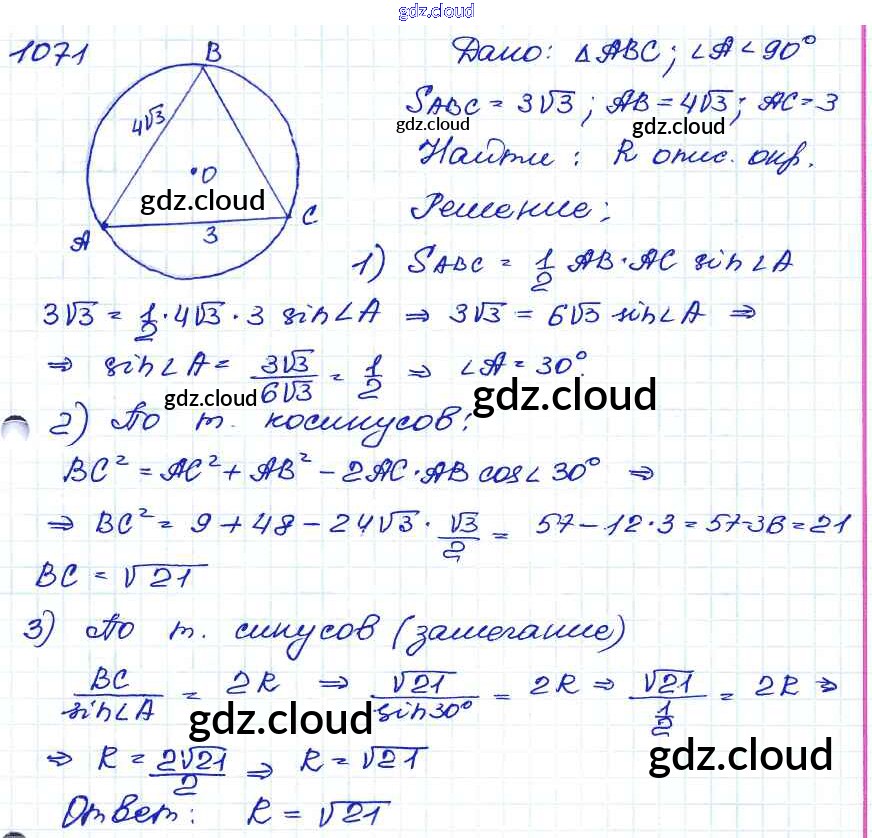 gdz.cloud
1071
B
4√3
O
gdz.cloud
A
3
C
Дано: △ABC; ∠A < 90°
SABC = 3√3; AB = 4√3; AC = 3
gdz.cloud gdz.cloud
Найти: R опис. окр.
Решение:
1) SABC = 1/2 AB · AC sin∠A
3√3 = 1/2 · 4√3 · 3 sin∠A ⇒ 3√3 = 6√3 sin∠A ⇒
⇒ sin∠A = 3√3/6√3 = 1/2 ⇒ ∠A = 30°.
gdz.cloud gdz.cloud
2) По т. косинусов:
BC² = AC² + AB² − 2AC · AB cos∠30° ⇒
⇒ BC² = 9 + 48 − 24√3 · √3/2 = 57 − 12 · 3 = 57-36 = 21
BC = √21
3) По т. синусов (замечание)
BC/sin∠A = 2R ⇒ √21/sin30° = 2R ⇒ √21/1/2 = 2R ⇒
gdz.cloud
⇒ R = 2√21/2 ⇒ R = √21
gdz.cloud
Ответ: R = √21